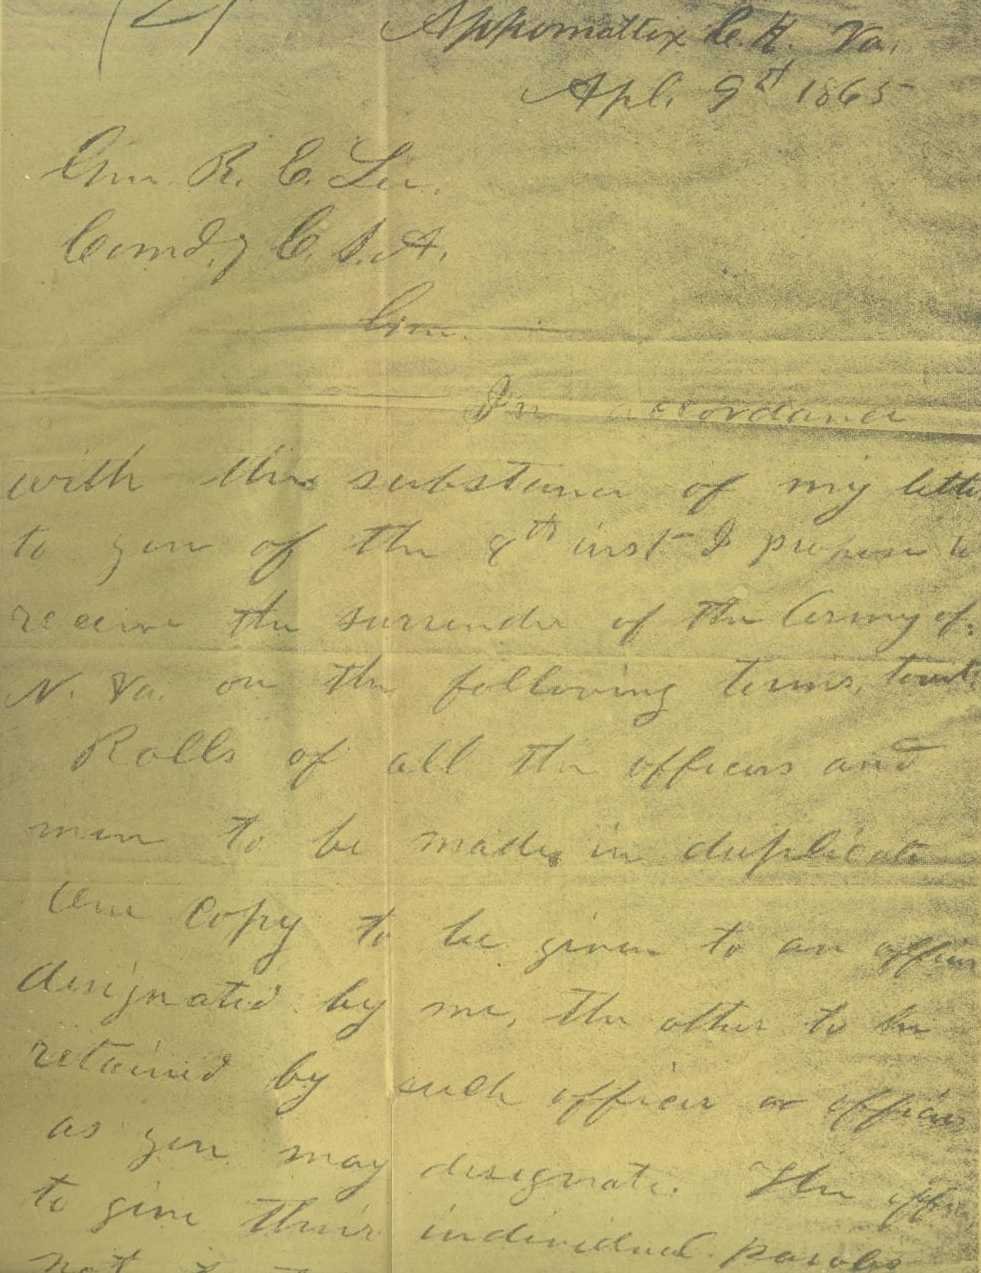 Appomattox C. H. Va.
Apl. 9th 1865
Gen. R. E. Lee.
Comd.g C. S. A.
Gen.
In accordance
with the substance of my lette
to you of the 8th inst I propose to
receive the surrender of the Army of
N. Va. on the following terms, towit
Rolls of all the officers and
men to be made in duplicate
One copy to be given to an officer
designated by me, the other to be
retained by such officer or officers
as you may designate. The office
to give their individual paroles
not